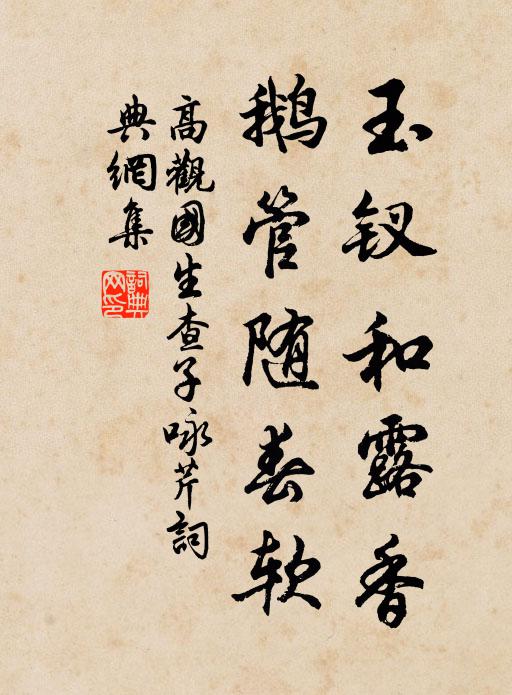 玉钗和露香
鹅管随春软
高觀國生查子咏芹詞
典網集
詞典
网印